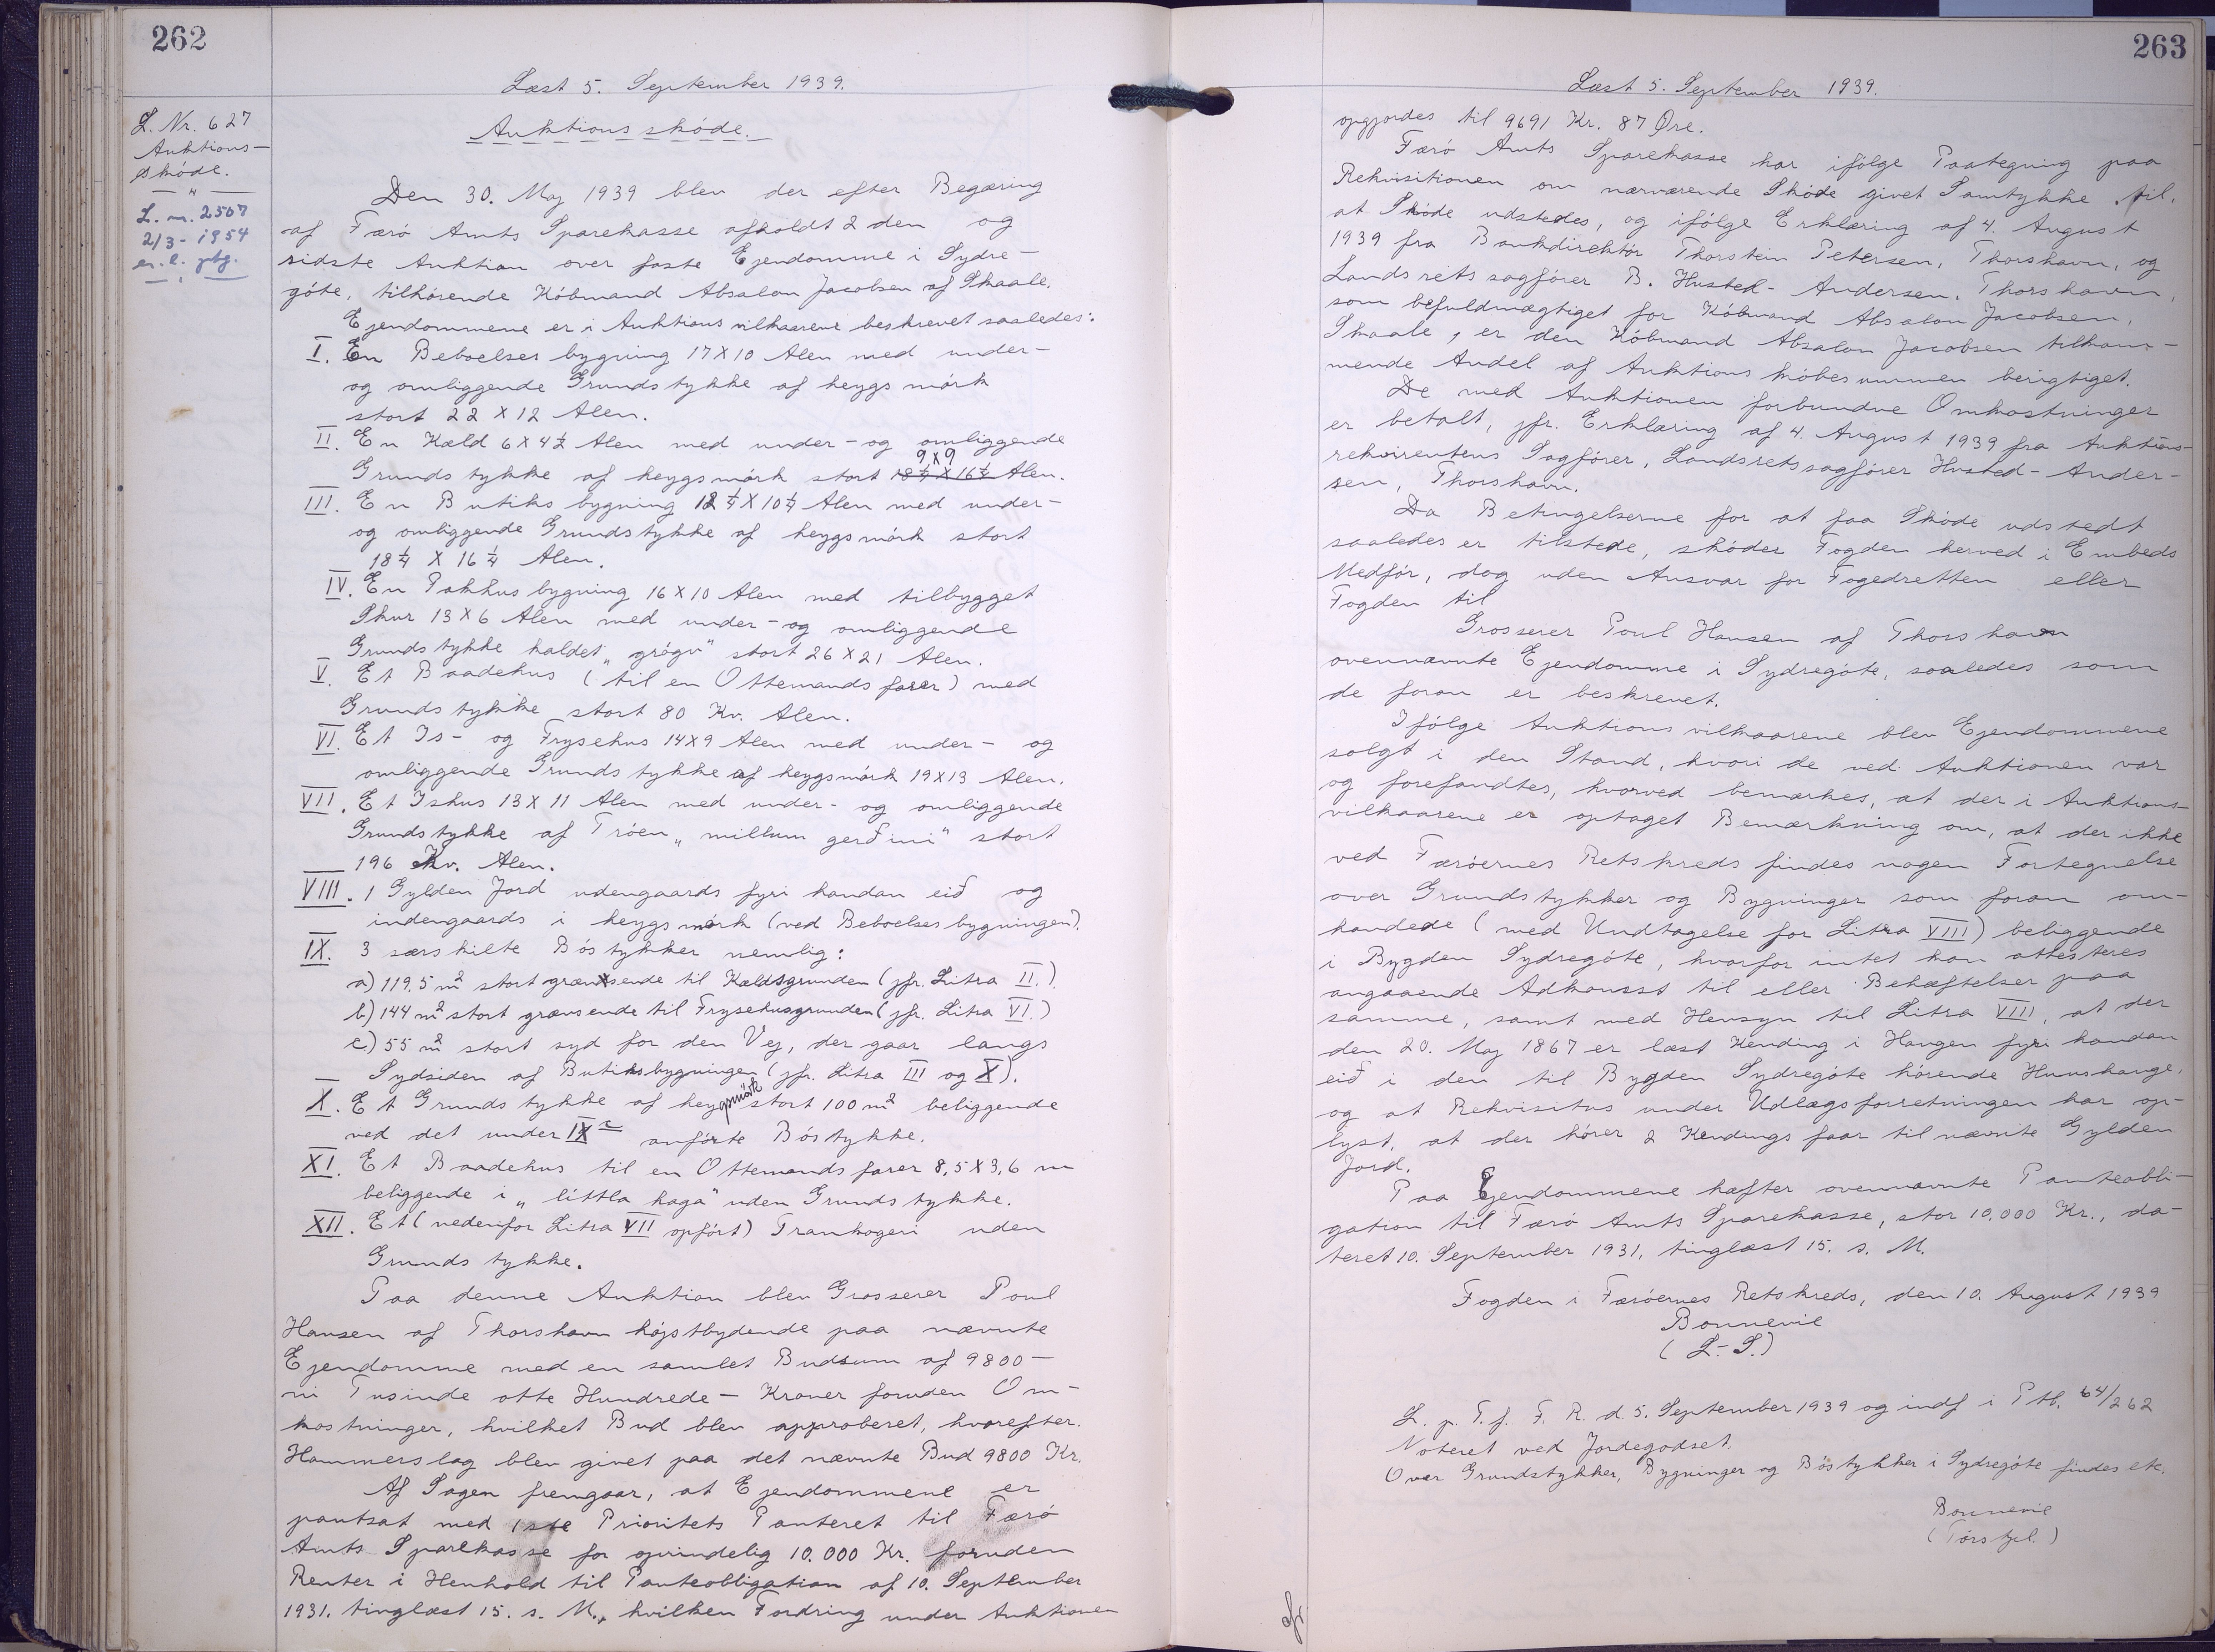 262
Læst 5. September 1939.
L. Nr. 627
Auktions-
skóde.
— " —
L. nr. 2507
2/3 - 1954
Auktionsskóde.
Den 30. Maj 1939 blev der efter Begæring
af Færó Amts Sparekasse afholdt 2 den og
sidste Auktion over faste Ejendomme i Sydre-
góte, tilhórende Kóbmand Absalon Jacobsen af Skaale.
Ejendommene er i Auktionsvilkaarene beskrevet saaledes:
I. En Beboelsesbygning 17 X 10 Alen med under-
og omliggende Grundstykke af heygsmórk
stort 22 X 12 Alen.
II. En Kæld 6 X 4½ Alen med under- og omliggende
9 X 9
Grundstykke af heygsmórk stort 18¼ X 16¼ Alen.
III. En Butiksbygning 12¼ X 10¼ Alen med under-
og omliggende Grundstykke af heygsmórk stort
18¼ X 16¼ Alen.
IV. En Pakhusbygning 16 X 10 Alen med tilbygget
Skur 13 X 6 Alen med under- og omliggende
Grundstykke kaldet „grógv" stort 26 X 21 Alen.
V. Et Baadehus (til en Ottemandsfarer) med
Grundstykke stort 80 Kv. Alen.
VI. Et Is- og Frysehus 14X9 Alen med under- og
omliggende Grundstykke af heygsmórk 19X13 Alen.
VII. Et Ishus 13 X 11 Alen med under- og omliggende
Grundstykke af Tróen „millum gerðini" stort
196 Kv. Alen.
VIII. 1 Gylden Jord udengaards fyri handan eið og
indengaards i heygsmórk (ved Beboelsesbygningen).
IX. 3 særskilte Bóstykker nemlig:
a) 119.5 m² stort grænsende til Kældsgrunden (jfr. Litra II.).
b) 144 m² stort grænsende til Frysehusgrunden (jfr. Litra VI.)
c) 55 m² stort syd for den Vej, der gaar langs
Sydsiden af Butiksbygningen (jfr. Litra III og X).
X. Et Grundstykke af heygsmórk stort 100 m² beliggende
ved det under IX c anfórte Bóstykke.
XI. Et Baadehus til en Ottemandsfarer 8,5 X 3,6 m
beliggende i „líttla haga" uden Grundstykke.
XII. Et (nedenfor Litra VII opfórt) Trankogeri uden
Grundstykke.
Paa denne Auktion blev Grosserer Poul
Hansen af Thorshavn hójstbydende paa nævnte
Ejendomme med en samlet Budsum af 9800 —
ni Tusinde otte Hundrede — Kroner foruden Om-
kostninger, hvilket Bud blev approberet, hvorefter.
Hammerslag blev givet paa det nævnte Bud 9800 Kr.
Af Sagen fremgaar, at Ejendommene er
pantsat med 1ste Prioritets Panteret til Færó
Amts Sparekasse for oprindelig 10.000 Kr. foruden
Renter i Henhold til Panteobligation af 10. September
1931. tinglæst 15. s. M., hvilken Fordring under Auktionen
263
Læst 5. September 1939.
opgjordes til 9691 Kr. 87 Øre.
Færó Amts Sparekasse har ifólge Paategning paa
Rekvisitionen om nærværende Skóde givet Samtykke til,
at Skóde udstedes, og ifólge Erklæring af 4. August
1939 fra Bankdirektór Thorstein Petersen, Thorshavn, og
Landsretssagfórer B. Husted-Andersen, Thorshavn,
som befuldmægtiget for Kóbmand Absalon Jacobsen,
Skaale, er den Kóbmand Absalon Jacobsen tilkom-
mende Andel af Auktionskóbesummen berigtiget.
De med Auktionen forbundne Omkostninger
er betalt, jfr. Erklæring af 4. August 1939 fra Auktions-
rekvirentens Sagfórer, Landsretssagfórer Husted-Ander-
sen, Thorshavn.
Da Betingelserne for at faa Skóde udstedt
saaledes er tilstede, skóder Fogden herved i Embeds
Medfór, dog uden Ansvar for Fogedretten eller
Fogden til
Grosserer Poul Hansen af Thorshavn
ovennævnte Ejendomme i Sydregóte, saaledes som
de foran er beskrevet.
Ifólge Auktionsvilkaarene blev Ejendommene
solgt i den Stand, hvori de ved Auktionen var
og forefandtes, hvorved bemærkes, at der i Auktions-
vilkaarene er optaget Bemærkning om, at der ikke
ved Færóernes Retskreds findes nogen Fortegnelse
over Grundstykker og Bygninger som foran om-
handede (med Undtagelse for Litra VIII) beliggende
i Bygden Sydregóte, hvorfor intet kan attesteres
angaaende Adkomst til eller Behæftelser paa
samme, samt med Hensyn til Litra VIII, at der
den 20. Maj 1867 er læst Kending i Haugen fyri handan
eið i den til Bygden Sydregóte hórende Huushauge,
og at Rekvisitus under Udlægsforretningen har op-
lyst, at der hórer 2 Kendingsfaar til nævnte Gylden
Jord.
Paa Ejendommene hæfter ovennævnte Panteobli-
gation til Færó Amts Sparekasse, stor 10.000 Kr., da-
teret 10. September 1931, tinglæst 15. s. M.
Fogden i Færóernes Retskreds, den 10. August 1939
Bonnevie
(L.S.)
L. p. T. f. F. R. d. 5. September 1939 og indf i Ptb. 64/262
Noteret ved Jordegodset.
Over Grundstykker, Bygninger og Bóstykker i Sydregóte findes etc.
Bonnevie